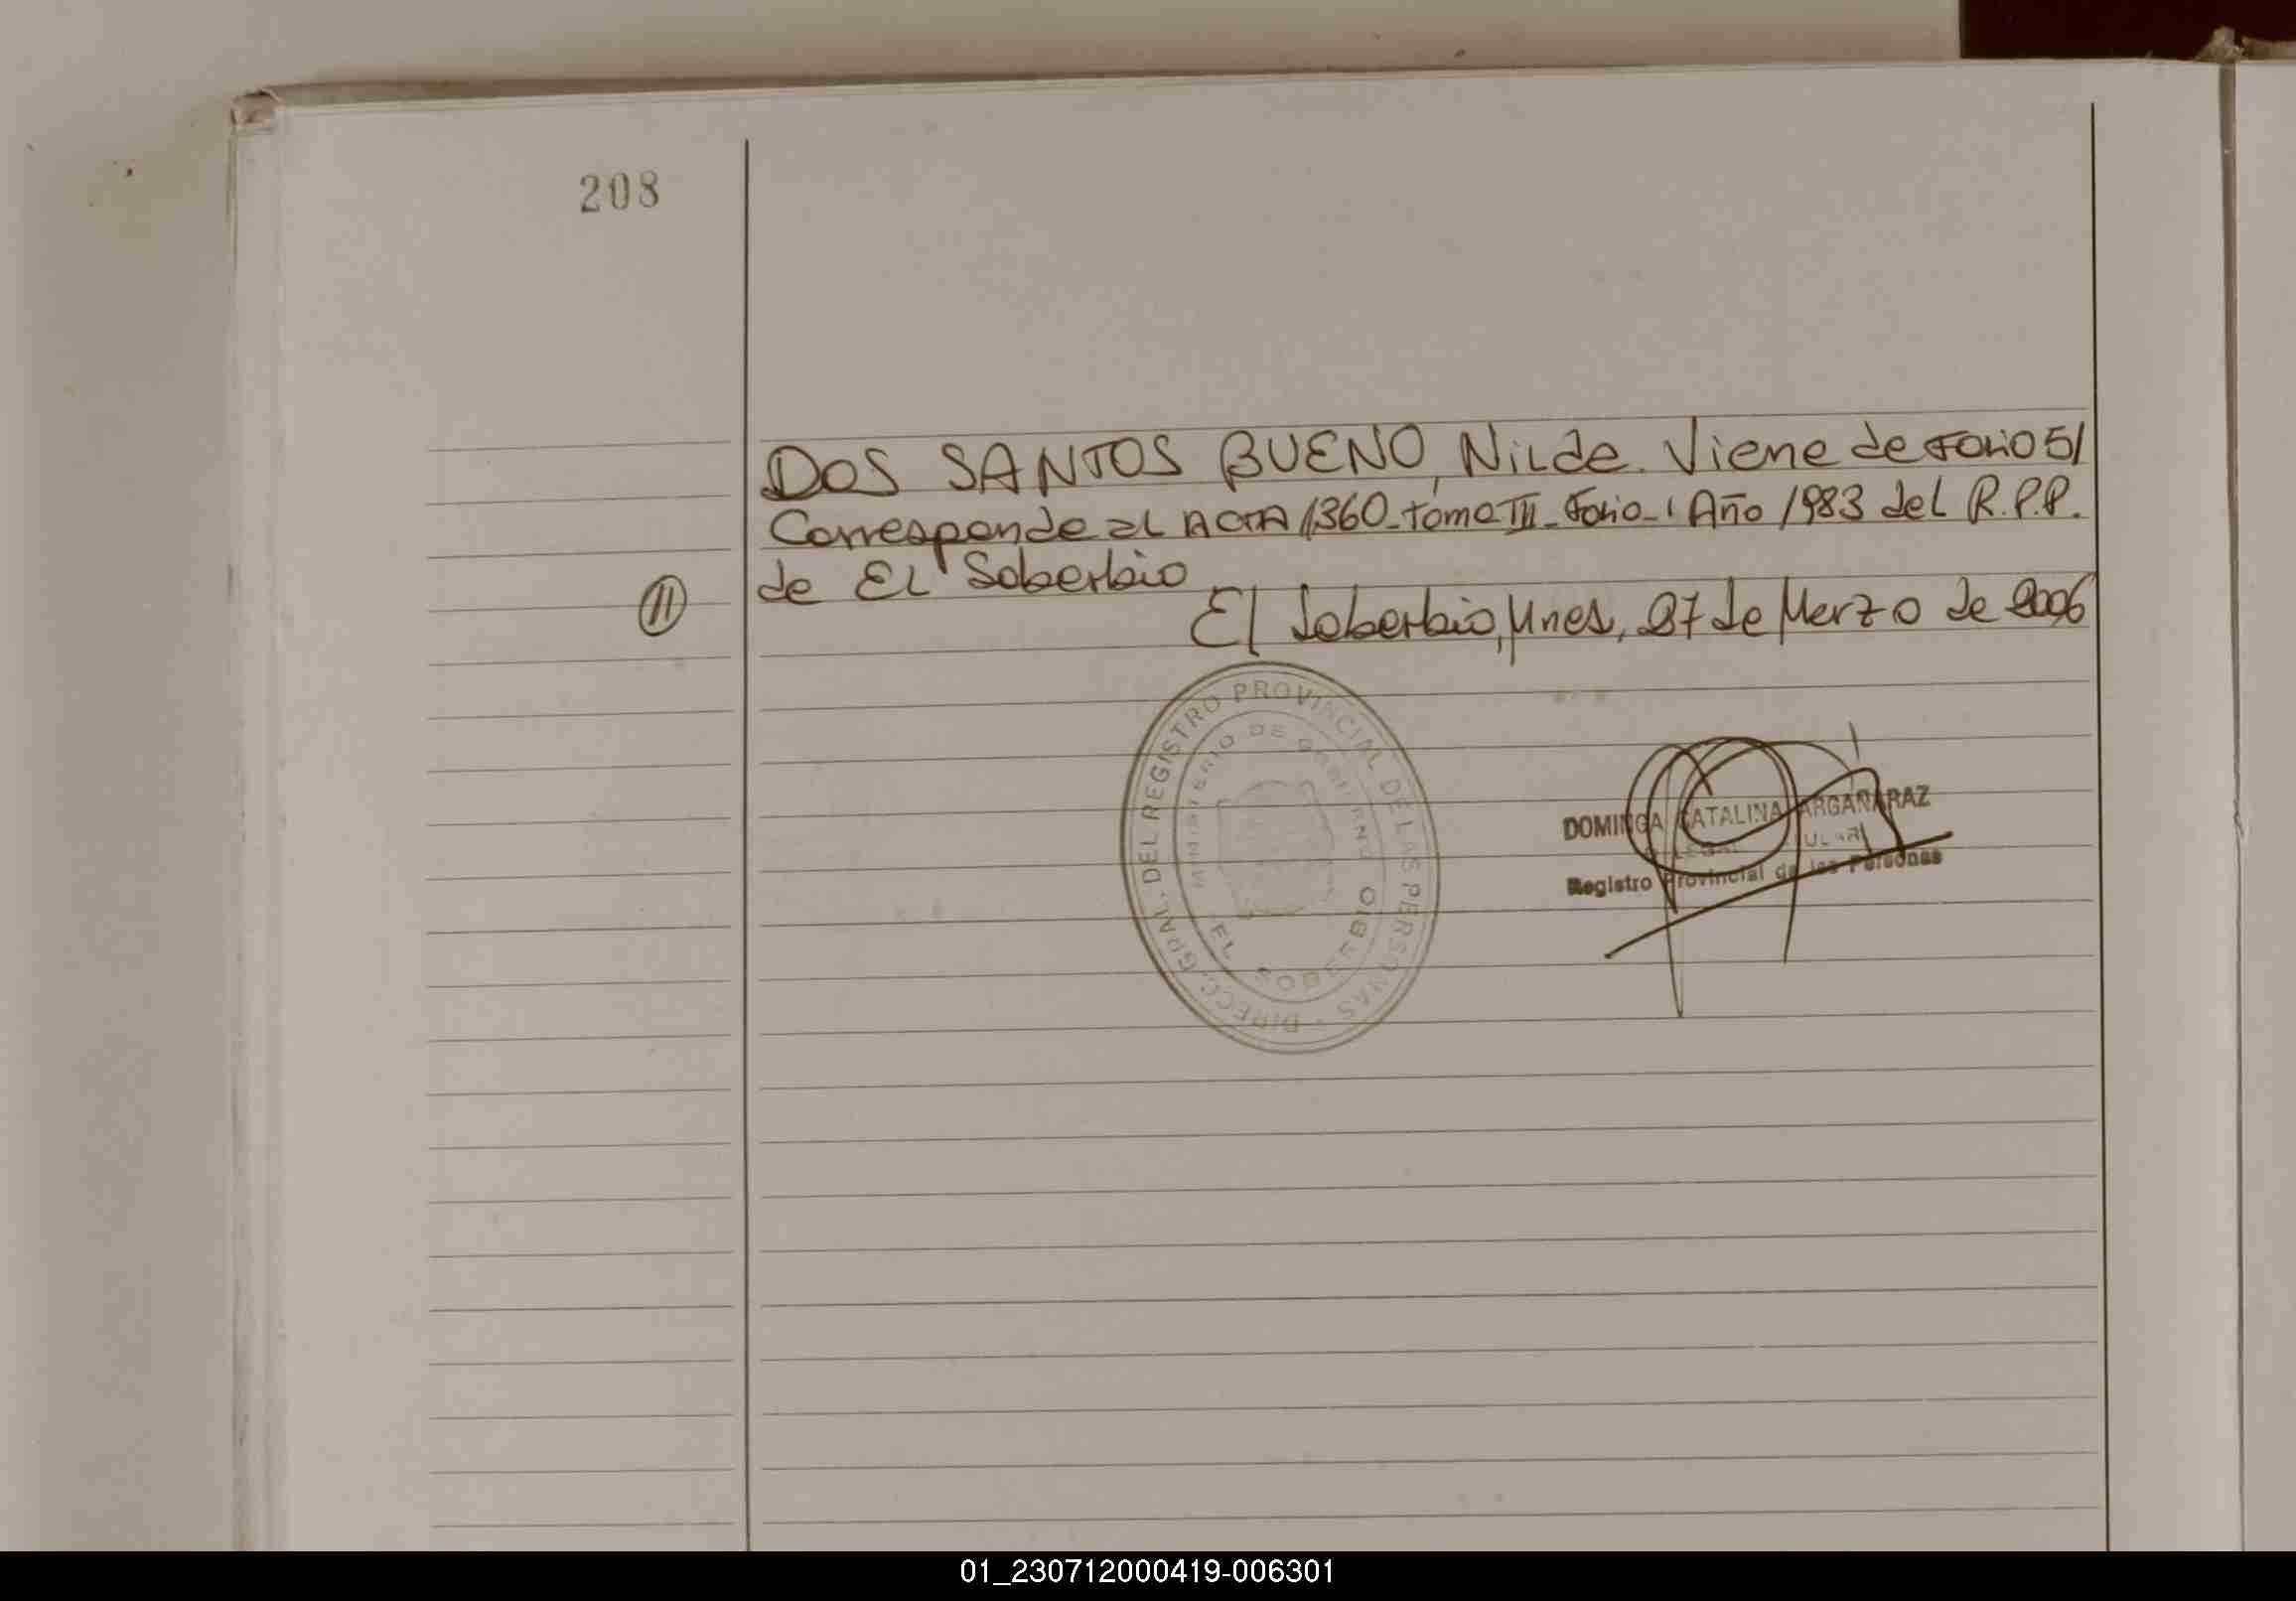 208
DOS SANTOS BUENO, Nilde. Viene de Folio 51
Corresponde al ACTA 1360_tomo III_Folio_1 Año 1983 del R.P.P.
de EL Soberbio
11
El Soberbio, Mnes, 27 de Marzo de 2006
DIRECC. GRAL. DEL REGISTRO PROVINCIAL DE LAS PERSONAS
MINISTERIO DE GOBIERNO
EL SOBERBIO
DOMINGA CATALINA ARGAÑARAZ
Registro Provincial de las Personas
01_230712000419-006301